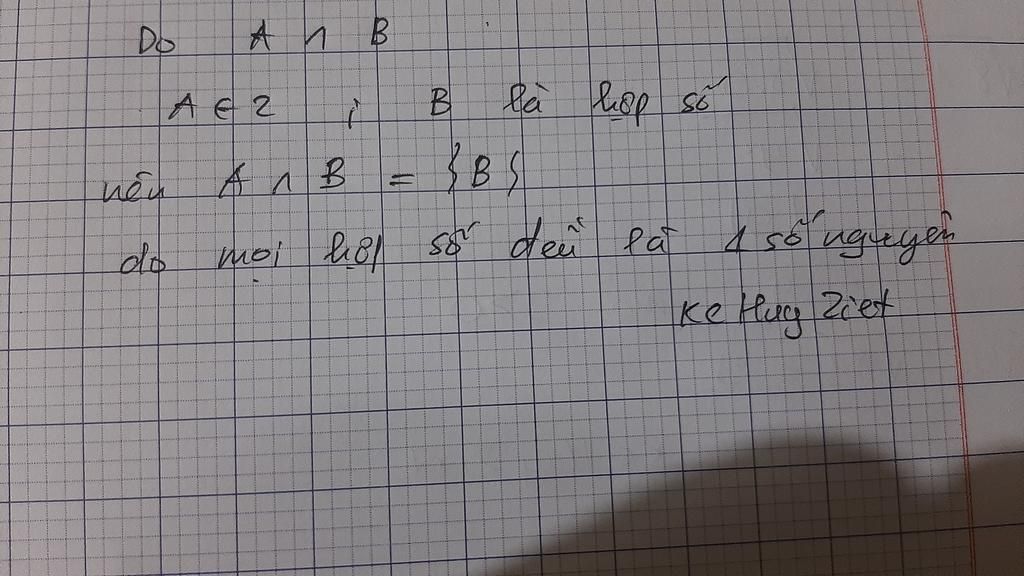 Do A ∩ B
A ∈ Z ; B là hợp số
nếu A ∩ B = {B}
do mọi hợp số đều là 1 số nguyên